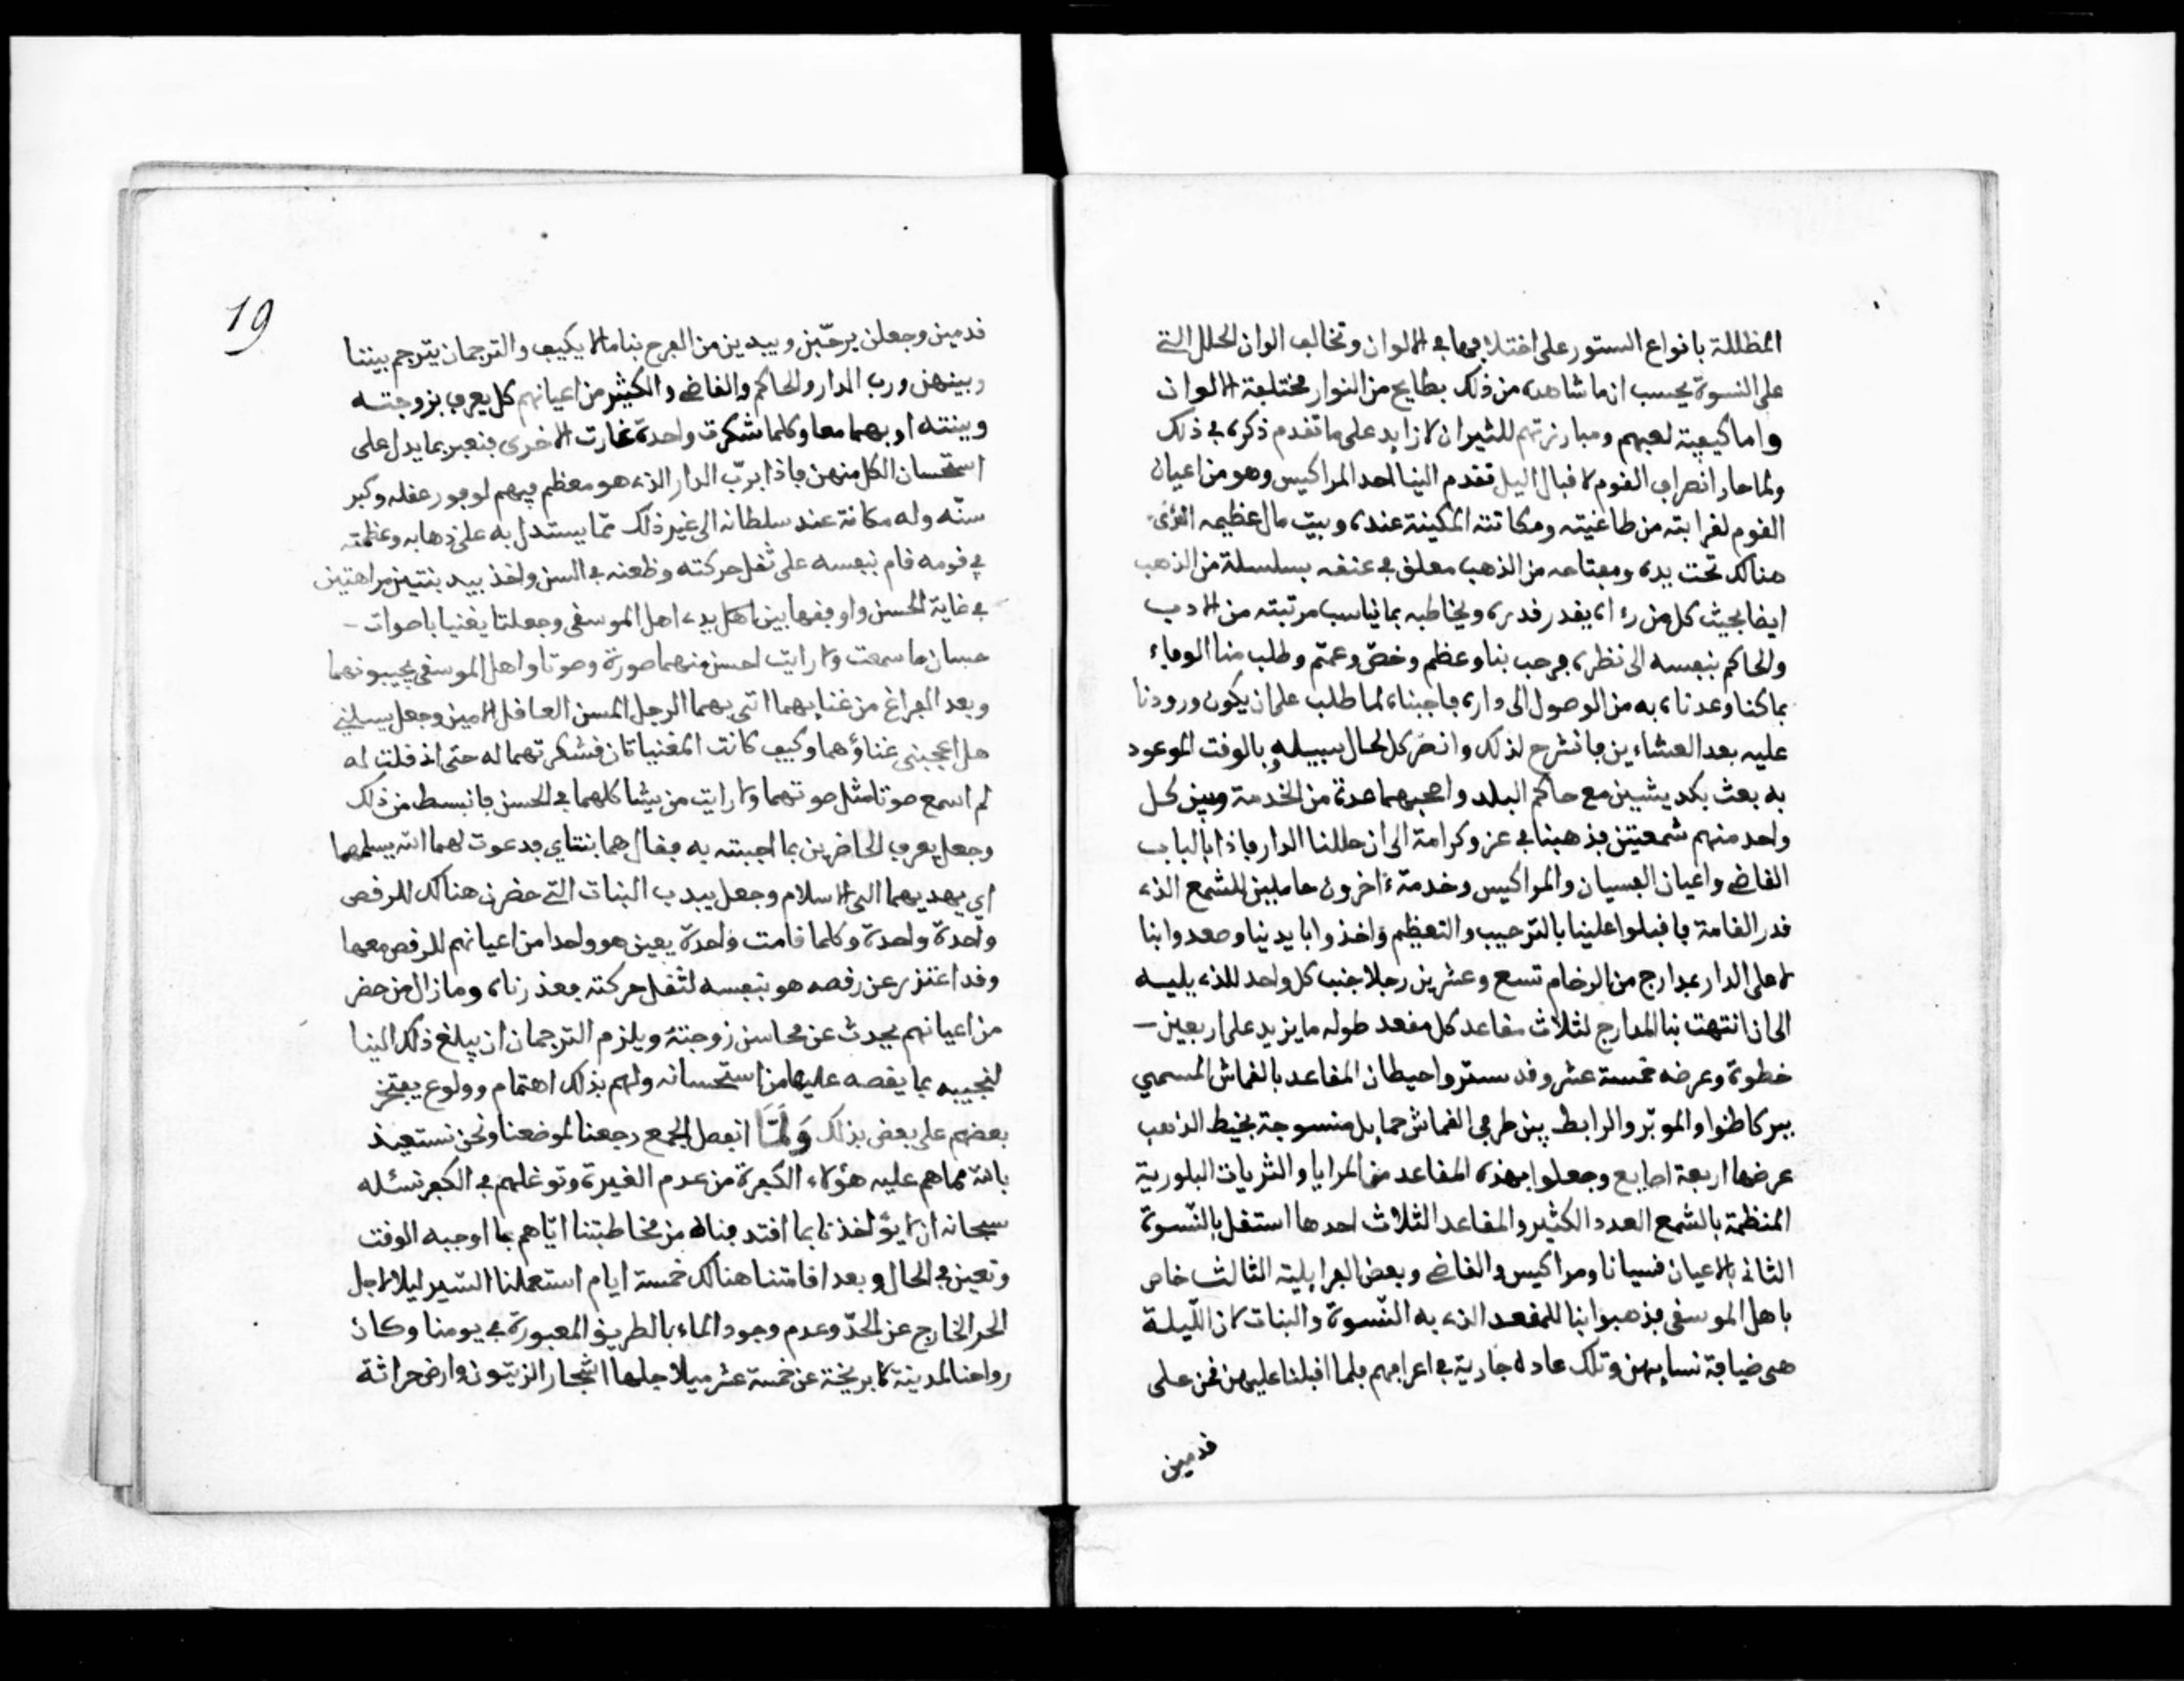 المظللة بانواع الستور على اختلافها في الالوان وتخالف الوان الحلل التي
على النسوة يحسب ان ما شاهده من ذلك بطايح من النوار مختلفة الالوان
واما كيفية لعبهم ومبارزتهم للثيران لا زايد على ما تقدم ذكره في ذلك
ولما حان انصراف القوم لاقبال اليل تقدم الينا احد المراكيس وهو من اعيان
القوم لقرابته من طاغيته ومكانته المكينة عنده وبيت مال عظيمه
هنالك تحت يده ومفتاحه من الذهب معلق في عنقه بسلسلة من الذهب
ايضا بحيث كل من رءاه يقدر قدره ويخاطبه بما يناسب مرتبته من الادب
والحاكم بنفسه الى نظره فرحب بنا وعظم وخص وعمم وطلب منا الوفاء
بما كنا وعدناه به من الوصول الى داره فاجبناه لما طلب على ان يكون ورودنا
عليه بعد العشاءين فانشرح لذلك وانصرف كل لحال سبيله وبالوقت الموعود
به بعث بكديشين مع حاكم البلد واصحبهما عدة من الخدمة وبين كل
واحد منهم شمعتين فذهبنا في عز وكرامة الى ان حللنا الدار فاذا بالباب
القاضي واعيان الفسيان والمراكيس وخدمة ءاخرون حاملين للشمع الذي
قدر القامة فاقبلوا علينا بالترحيب والتعظيم واخذوا بايدينا وصعدوا بنا
لاعلى الدار بمدارج من الرخام تسع وعشرين رجلا جنب كل واحد للذي يليه
الى ان انتهت بنا المدارج لثلاث مقاعد كل مقعد طوله ما يزيد على اربعين
خطوة وعرضه خمسة عشر وقد ستروا حيطان المقاعد بالقماش المسمى
ببركاطنوا والموبر والرابط بين طرفي القماش حمايل منسوجة بخيط الذهب
عرضها اربعة اصابع وجعلوا بهذه المقاعد من المرايا والثريات البلورية
المنظمة بالشمع العدد الكثير والمقاعد الثلاث احدها استقل بالنسوة
الثاني بالاعيان فسيانا ومراكيس والقاضي وبعض الفرايلية الثالث خاص
باهل الموسقى فذهبوا بنا للمقعد الذي به النسوة والبنات لان الليلة
هي ضيافة نسايهن وتلك عادة جارية في اعرافهم فلما اقبلنا عليهن قمن على
قدمين
19
قدمين وجعلن يرحبن ويبدين من الفرح بنا ما لا يكيف والترجمان يترجم بيننا
وبينهن ورب الدار والحاكم والقاضي والكثير من اعيانهم كل يعرف بزوجته
وبنته او بهما معا وكلما شكرت واحدة غارت الاخرى فنعبر بما يدل على
استحسان الكل منهن فاذا برب الدار الذي هو معظم فيهم لوفور عقله وكبر
سنه وله مكانة عند سلطانه الى غير ذلك مما يستدل به على ذهابه وعظمته
في قومه قام بنفسه على ثقل حركته وظعنه في السن واخذ بيد بنتين مراهقتين
في غاية الحسن واوقفها بين اهل الموسقى وجعلتا يغنيا باصوات
حسان ما سمعت ولا رايت احسن منهما صورة وصوتا واهل الموسقى يجيبونهما
وبعد الفراغ من غنايهما اتى بهما الرجل المسن العاقل الامين وجعل يسيلني
هل اعجبني غناؤهما وكيف كانت المغنياتان فشكرتهما له حتى اذ قلت له
لم اسمع صوتا مثل صوتهما ولا رايت من يشاكلهما في الحسن فانبسط من ذلك
وجعل يعرف الحاضرين بما اجبته به فقال هما بنتاي فدعوت لهما الله يسلمهما
اي يهديهما الى الاسلام وجعل يبدب البنات التي حضرن هنالك للرقص
واحدة واحدة وكلما قامت واحدة يعين هو واحدا من اعيانهم للرقص معها
وقد اعتذر عن رقصه هو بنفسه لثقل حركته فعذرناه وما زال من حضر
من اعيانهم يحدث عن محاسن زوجته ويلزم الترجمان ان يبلغ ذلك الينا
لنجيبه بما يقصه عليها من استحسانه ولهم بذلك اهتمام وولوع يفتخر
بعضهم على بعض بذلك وَلَمَّا انفصل الجمع رجعنا لموضعنا ونحن نستعيذ
بالله مما هم عليه هؤلاء الكفرة من عدم الغيرة وتوغلهم في الكفر نسئله
سبحانه ان لا يؤاخذنا بما اقتدفناه من مخاطبتنا اياهم بما اوجبه الوقت
وتعين في الحال وبعد اقامتنا هنالك خمسة ايام استعملنا السير ليلا لاجل
الحر الخارج عن الحد وعدم وجود الماء بالطريق المعبورة في يومنا وكان
رواحنا لمدينة لابريخة عن خمسة عشر ميلا جلها اشجار الزيتون وارض حراثة